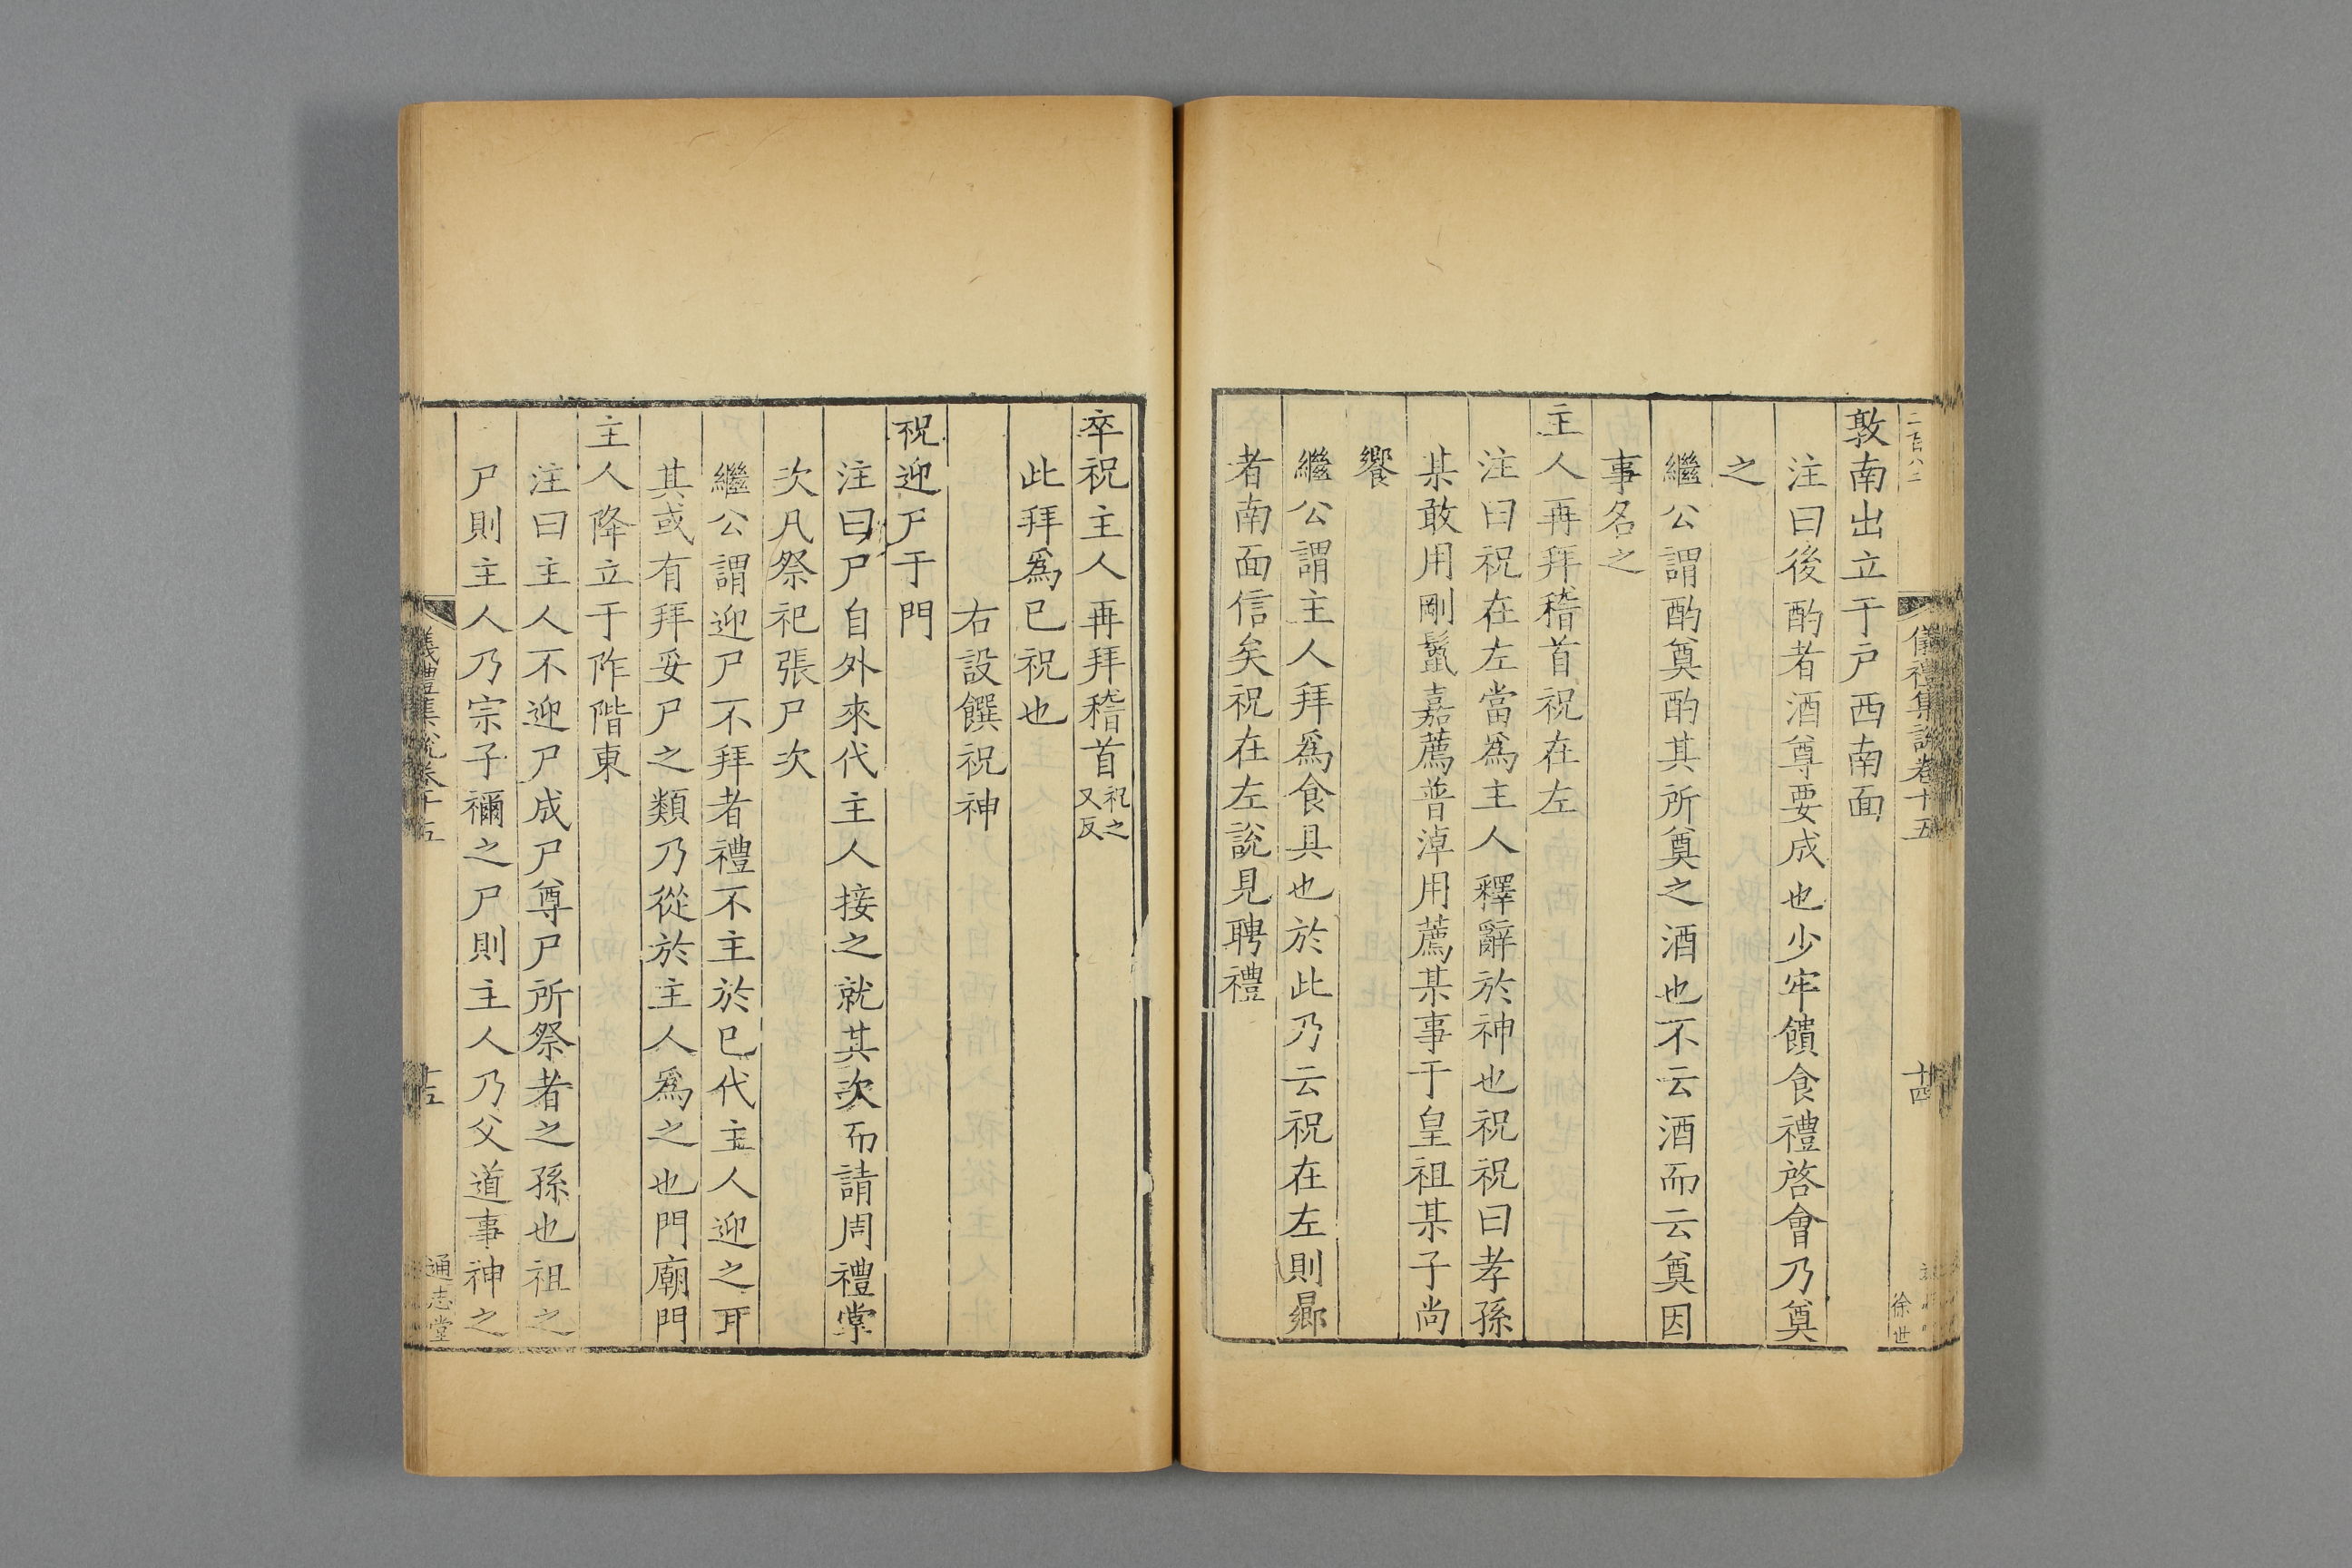 二百八二
儀禮集說卷十五
十四
徐世
敦南出立于戶西南面
注曰後酌者酒尊要成也少牢饋食禮啓會乃奠
之
繼公謂酌奠酌其所奠之酒也不云酒而云奠因
事名之
主人再拜稽首祝在左
注曰祝在左當爲主人釋辭於神也祝祝曰孝孫
某敢用剛鬛嘉薦普淖用薦某事于皇祖某子尚
饗
繼公謂主人拜爲食具也於此乃云祝在左則曏
者南面信矣祝在左說見聘禮
卒祝主人再拜稽首祝之又反
此拜爲已祝也
右設饌祝神
祝迎尸于門
注曰尸自外來代主人接之就其次而請周禮掌
次凡祭祀張尸次
繼公謂迎尸不拜者禮不主於已代主人迎之耳
其或有拜妥尸之類乃從於主人爲之也門廟門
主人降立于阼階東
注曰主人不迎尸成尸尊尸所祭者之孫也祖之
尸則主人乃宗子禰之尸則主人乃父道事神之
儀禮集說卷十五
十五
通志堂